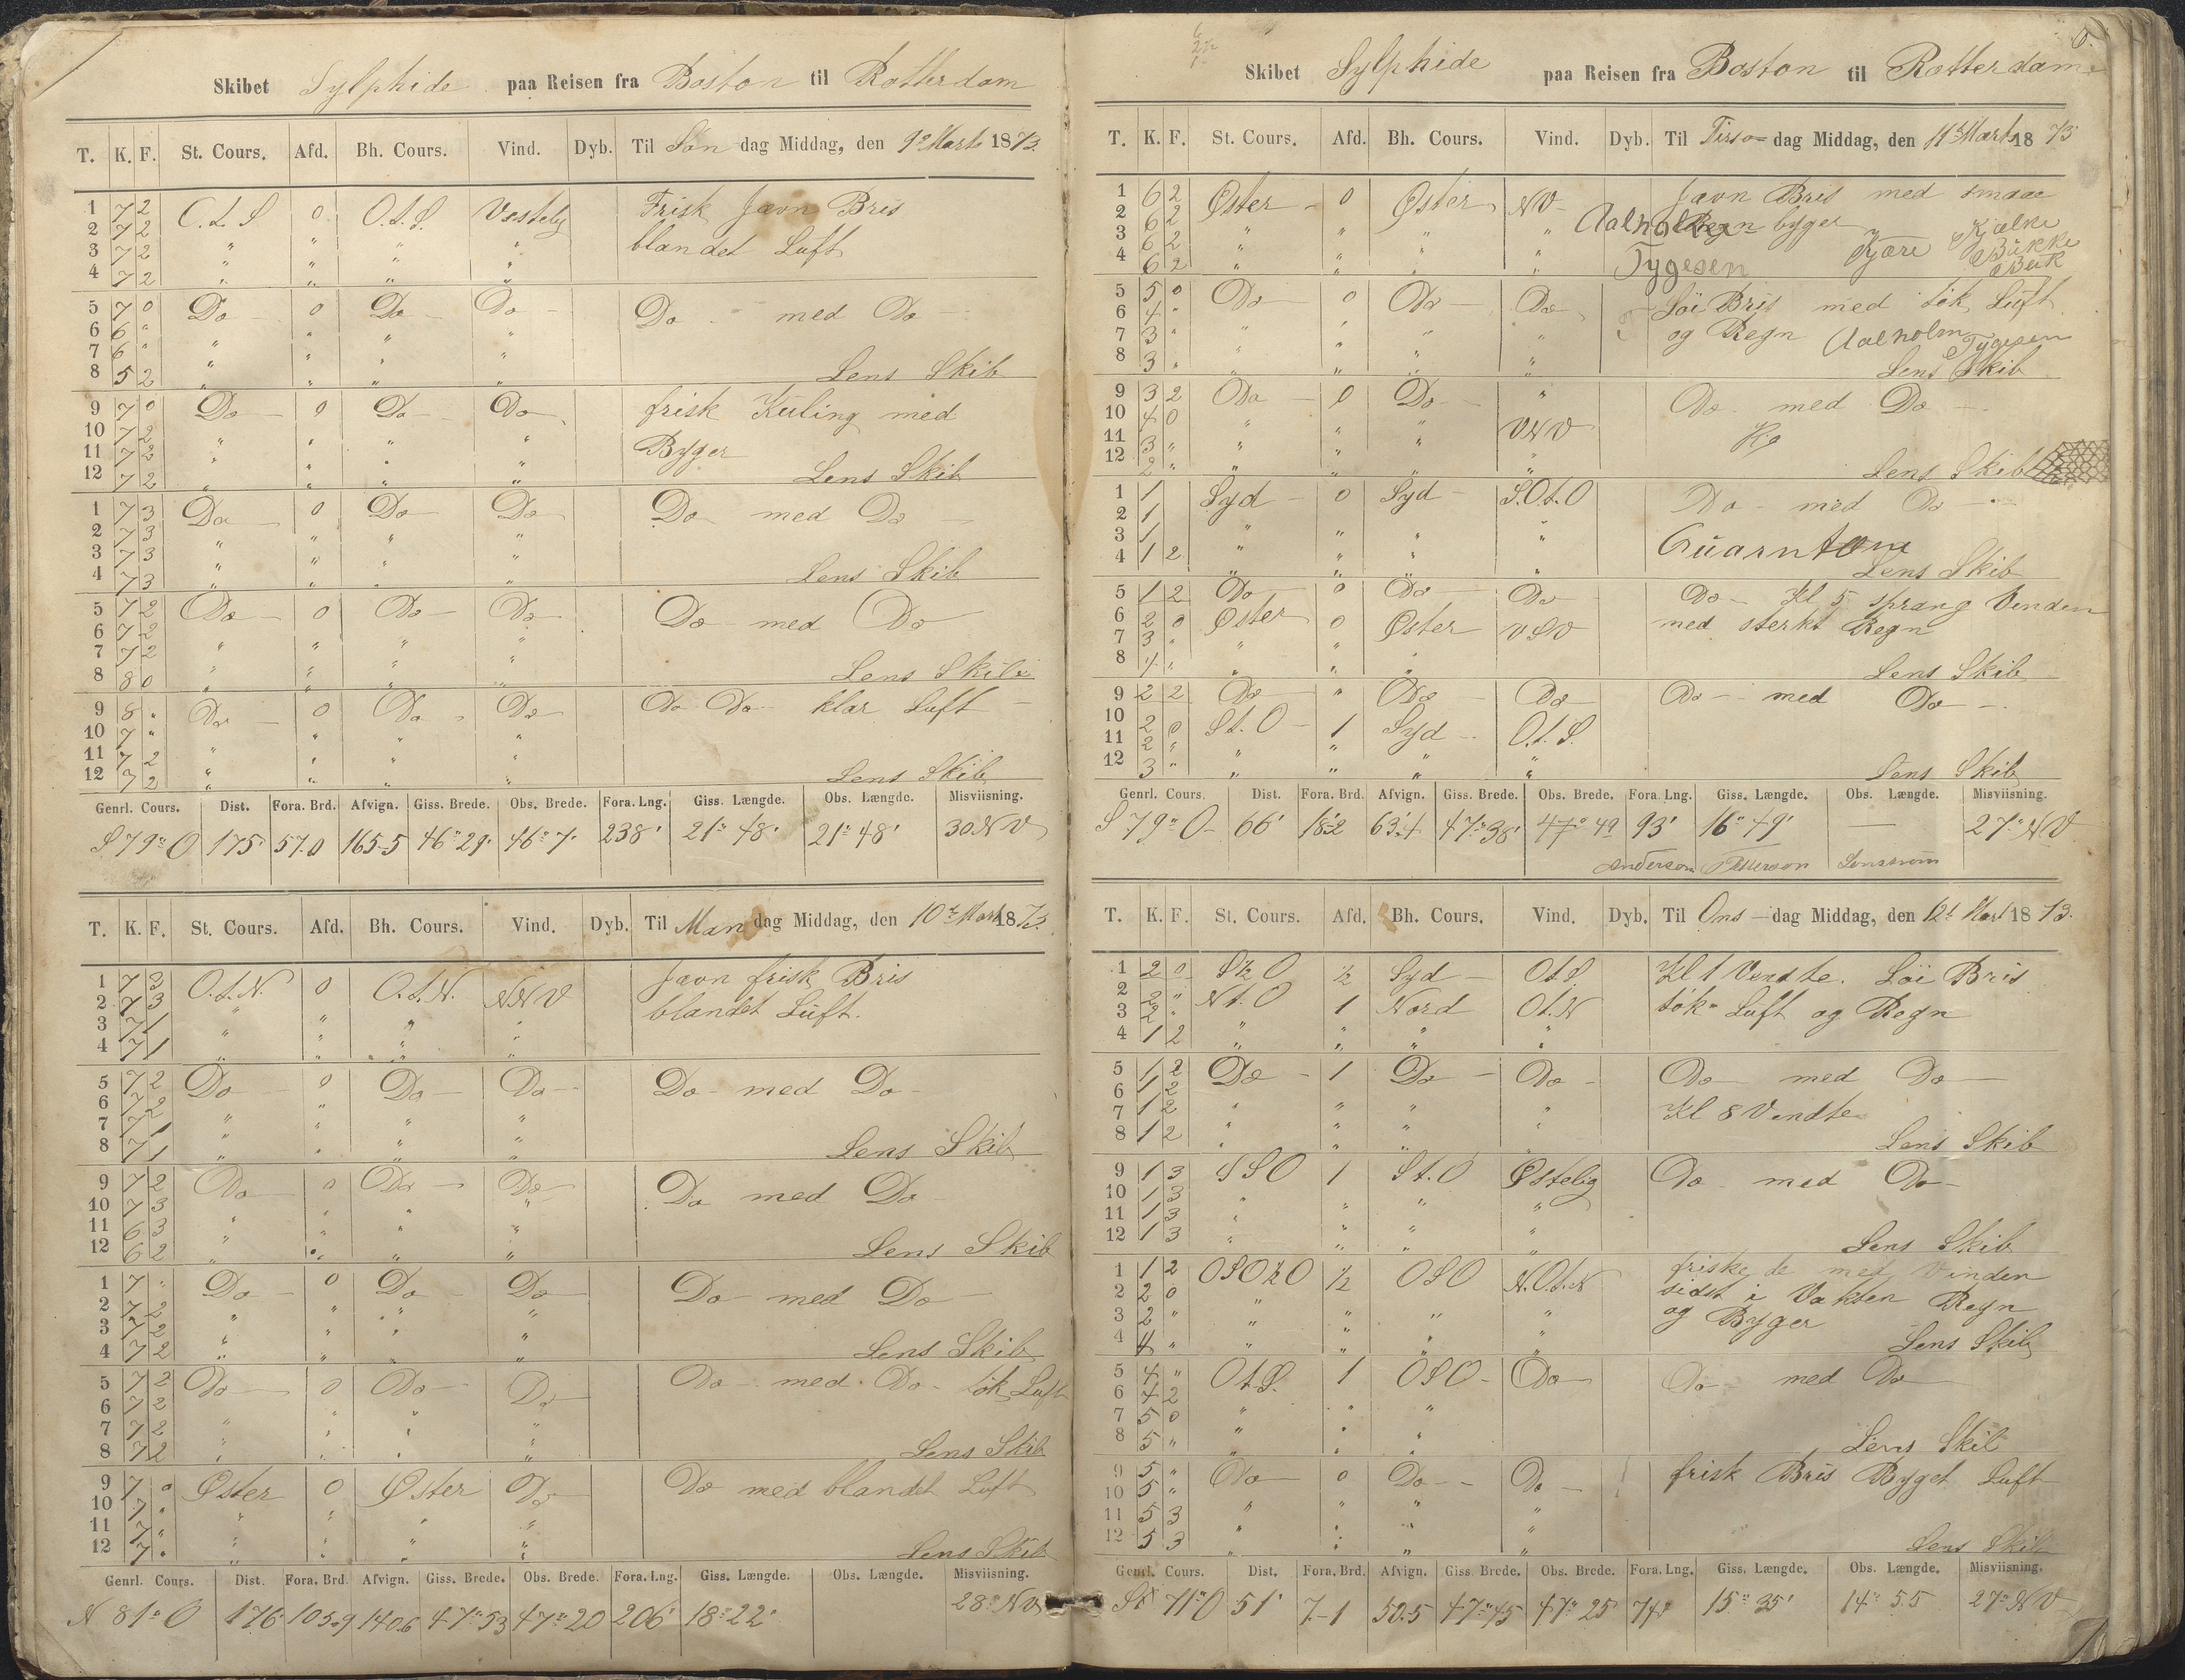 Skibet Sylphide paa Reisen fra Boston til Rotterdam
T. K. F. St. Cours. Afd. Bh. Cours. Vind. Dyb. Til Søn dag Middag, den 9de Marts 1873.
1 7 2 O.t.S 0 O.t.S. Vestelig Frisk Jævn Bris
2 7 2 " " " " blandet Luft
3 7 2 " " " "
4 7 2 " " " "
5 7 0 Do 0 Do Do Do med Do
6 6 " " " " "
7 6 " " " " "
8 5 2 " " " " Lens Skib
9 7 0 Do 0 Do Do frisk Kuling med
10 7 2 " " " " Byger
11 7 2 " " " "
12 7 2 " " " " Lens Skib
1 7 3 Do 0 Do Do Do med Do
2 7 3 " " " "
3 7 3 " " " "
4 7 3 " " " " Lens Skib
5 7 2 Do 0 Do Do Do med Do
6 7 2 " " " "
7 7 2 " " " "
8 8 0 " " " " Lens Skib
9 8 " Do 0 Do Do Do Do klar Luft
10 7 " " " " "
11 7 2 " " " "
12 7 2 " " " " Lens Skib
Genrl. Cours. Dist. Fora. Brd. Afvign. Giss. Brede. Obs. Brede. Fora. Lng. Giss. Længde. Obs. Længde. Misviisning.
S 79° O 175' 57.0 165.5 46° 29' 46° 7' 238' 21° 48' 21° 48' 30 NV
T. K. F. St. Cours. Afd. Bh. Cours. Vind. Dyb. Til Man dag Middag, den 10de Marts 1873.
1 7 3 O.t.N. 0 O.t.N. NNV Jævn frisk Bris
2 7 3 " " " " blandet Luft.
3 7 1 " " " "
4 7 1 " " " "
5 7 2 Do 0 Do Do Do med Do
6 7 2 " " " "
7 7 1 " " " "
8 7 1 " " " " Lens Skib
9 7 2 Do 0 Do Do Do med Do
10 7 3 " " " "
11 6 3 " " " "
12 6 2 " " " " Lens Skib
1 7 " Do 0 Do Do Do med Do
2 7 2 " " " "
3 7 2 " " " "
4 7 2 " " " " Lens Skib
5 7 2 Do 0 Do Do Do med Do tök Luft
6 7 2 " " " "
7 7 2 " " " "
8 7 2 " " " " Lens Skib
9 7 0 Øster 0 Øster Do Do med blandet Luft
10 7 " " " " "
11 7 " " " " "
12 7 " " " " " Lens Skib
Genrl. Cours. Dist. Fora. Brd. Afvign. Giss. Brede. Obs. Brede. Fora. Lng. Giss. Længde. Obs. Længde. Misviisning.
N 81° O 176' 105.9 140.6 47° 53 47° 20 206' 18° 22' 28° NV
6.
Skibet Sylphide paa Reisen fra Boston til Rotterdam
T. K. F. St. Cours. Afd. Bh. Cours. Vind. Dyb. Til Tirs dag Middag, den 11te Marts 1873
1 6 2 Øster 0 Øster NV Jævn Bris med smaae
2 6 2 " " " " Aalholm Regn byger Kjælke
3 6 2 " " " " Kjære Bükke
4 6 2 " " " " Tygesen Bük
5 5 0 Do 0 Do Do Löi Bris med tök Luft
6 4 " " " " " og Regn Aalholm Tygesen
7 3 " " " " "
8 3 " " " " " Lens Skib
9 3 2 Do 0 Do " Do med Do
10 4 0 " " " VNV
11 3 " " " " "
12 2 " " " " " Lens Skib
1 1 Syd 0 Syd S.O.t.O Do med Do
2 1
3 1 " " " " Guarntom
4 1 2 " " " " Lens Skib
5 1 2 Do 0 Do Do Do Kl 5 sprang Vinden
6 2 0 Øster 0 Øster VSV med sterkt Regn
7 3 " " " "
8 4 " " " " Lens Skib
9 2 2 Do " Do Do Do med Do
10 2 0 St.O 1 Syd O.t.S.
11 2 " " " "
12 3 " " " " " Lens Skib
Genrl. Cours. Dist. Fora. Brd. Afvign. Giss. Brede. Obs. Brede. Fora. Lng. Giss. Længde. Obs. Længde. Misviisning.
S 79° O 66' 18.2 63.4 47° 38' 47° 49 93' 16° 49' — 27° NV
Anderson Petterson Lenstrom
T. K. F. St. Cours. Afd. Bh. Cours. Vind. Dyb. Til Ons dag Middag, den 12t Mart 1873.
1 2 0 S½O ½ Syd O.t.S. Kl 1 Vendte. Löi Bris
2 2 " Nt.O 1 Nord Ot.N tök Luft og Regn
3 2 "
4 1 2 " " " "
5 1 2 Do 1 Do Do Do med Do
6 1 2
7 1 2 " " " " Kl 8 Vendte
8 1 2 " " " " Lens Skib
9 1 3 SSO 1 St.O Østelig Do med Do
10 1 3 " " " "
11 1 3 " " " "
12 1 3 " " " " Lens Skib
1 1 2 OSO½O ½ OSO N.O.t.N friskede med Vinden
2 2 0 " " " " sidst i Vakten Regn
3 2 " " " " " og Byger
4 4 " " " " " Lens Skib
5 4 " Ot.S. 1 OSO Do Do med Do
6 4 2
7 5 0 " " "
8 5 " " " " Lens Skib
9 5 " Do 0 Do Do frisk Bris Byget Luft
10 5 " " " " "
11 5 3 " " " "
12 5 3 " " " " Lens Skib
Genrl. Cours. Dist. Fora. Brd. Afvign. Giss. Brede. Obs. Brede. Fora. Lng. Giss. Længde. Obs. Længde. Misviisning.
71° O 51' 7-1 50.5 47° 45 47° 25' 74' 15° 35' 14° 55 27° NV